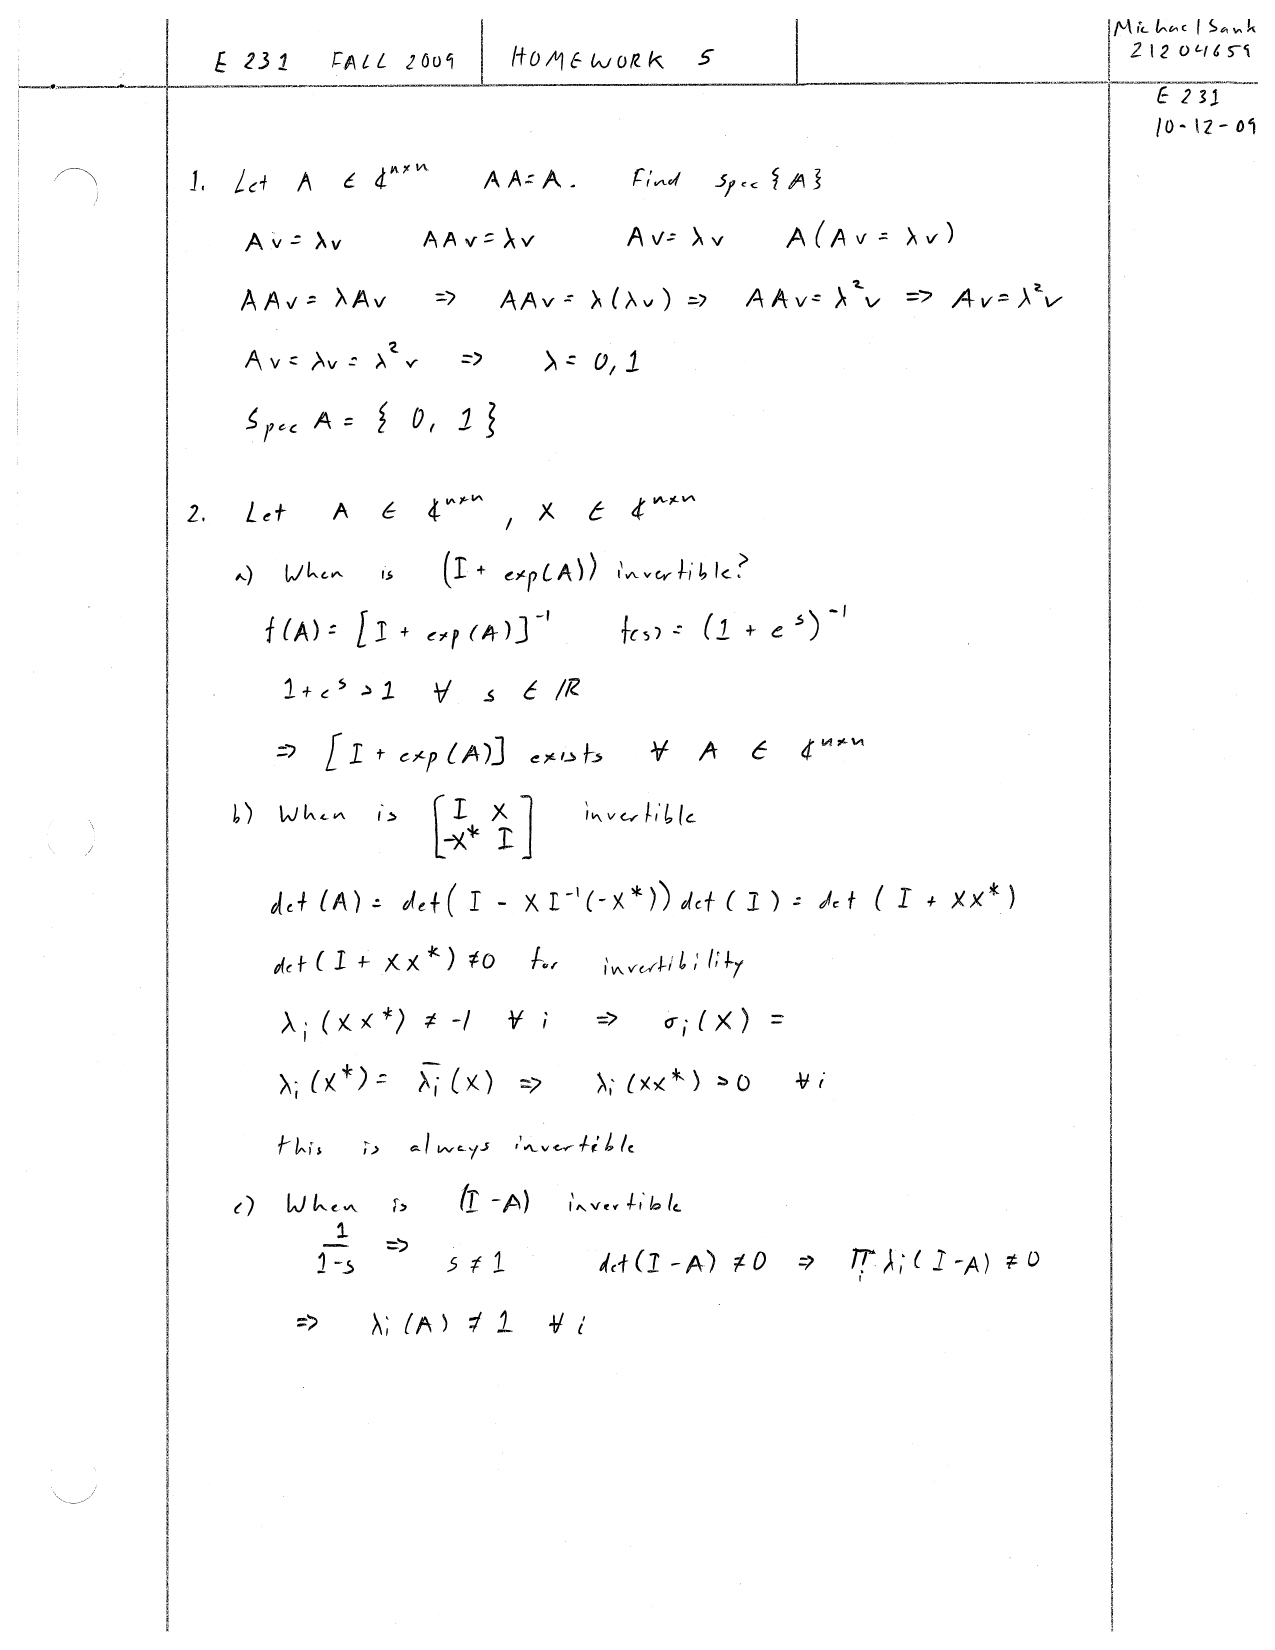 E 231 FALL 2009 HOMEWORK 5
Michael Sank
21204659
E 231
10-12-09
1. Let A ∈ ℂⁿˣⁿ AA=A. Find spec {A}
Av=λv AAv=λv Av=λv A(Av=λv)
AAv=λAv ⇒ AAv=λ(λv) ⇒ AAv=λ²v ⇒ Av=λ²v
Av=λv=λ²v ⇒ λ=0,1
Spec A = {0, 1}
2. Let A ∈ ℂⁿˣⁿ, X ∈ ℂⁿˣⁿ
a) When is (I + exp(A)) invertible?
f(A) = [I + exp(A)]⁻¹ f(s) = (1 + eˢ)⁻¹
1+eˢ > 1 ∀ s ∈ ℝ
⇒ [I + exp(A)] exists ∀ A ∈ ℂⁿˣⁿ
b) When is [I X
-X* I] invertible
det(A) = det(I - XI⁻¹(-X*)) det(I) = det(I + XX*)
det(I + XX*) ≠ 0 for invertibility
λᵢ(XX*) ≠ -1 ∀ i ⇒ σᵢ(X) =
λᵢ(X*) = λ̄ᵢ(X) ⇒ λᵢ(XX*) > 0 ∀ i
this is always invertible
c) When is (I-A) invertible
1/(1-s) ⇒ s ≠ 1 det(I-A) ≠ 0 ⇒ Πᵢ λᵢ(I-A) ≠ 0
⇒ λᵢ(A) ≠ 1 ∀ i